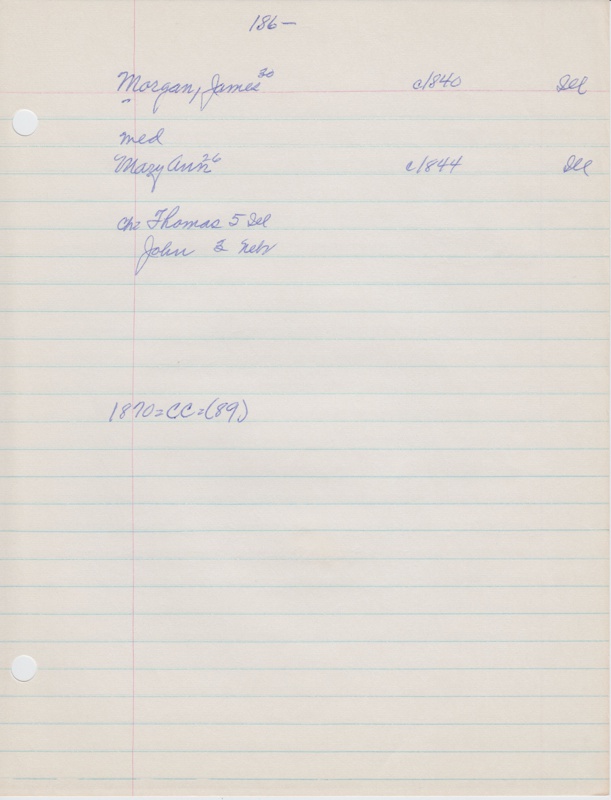 186—
Morgan, James 30 c1840 Del
med
Mary Ann 26 c1844 Del
che Thomas 5 Del
John 2 Nebr
1870=CC=(89)